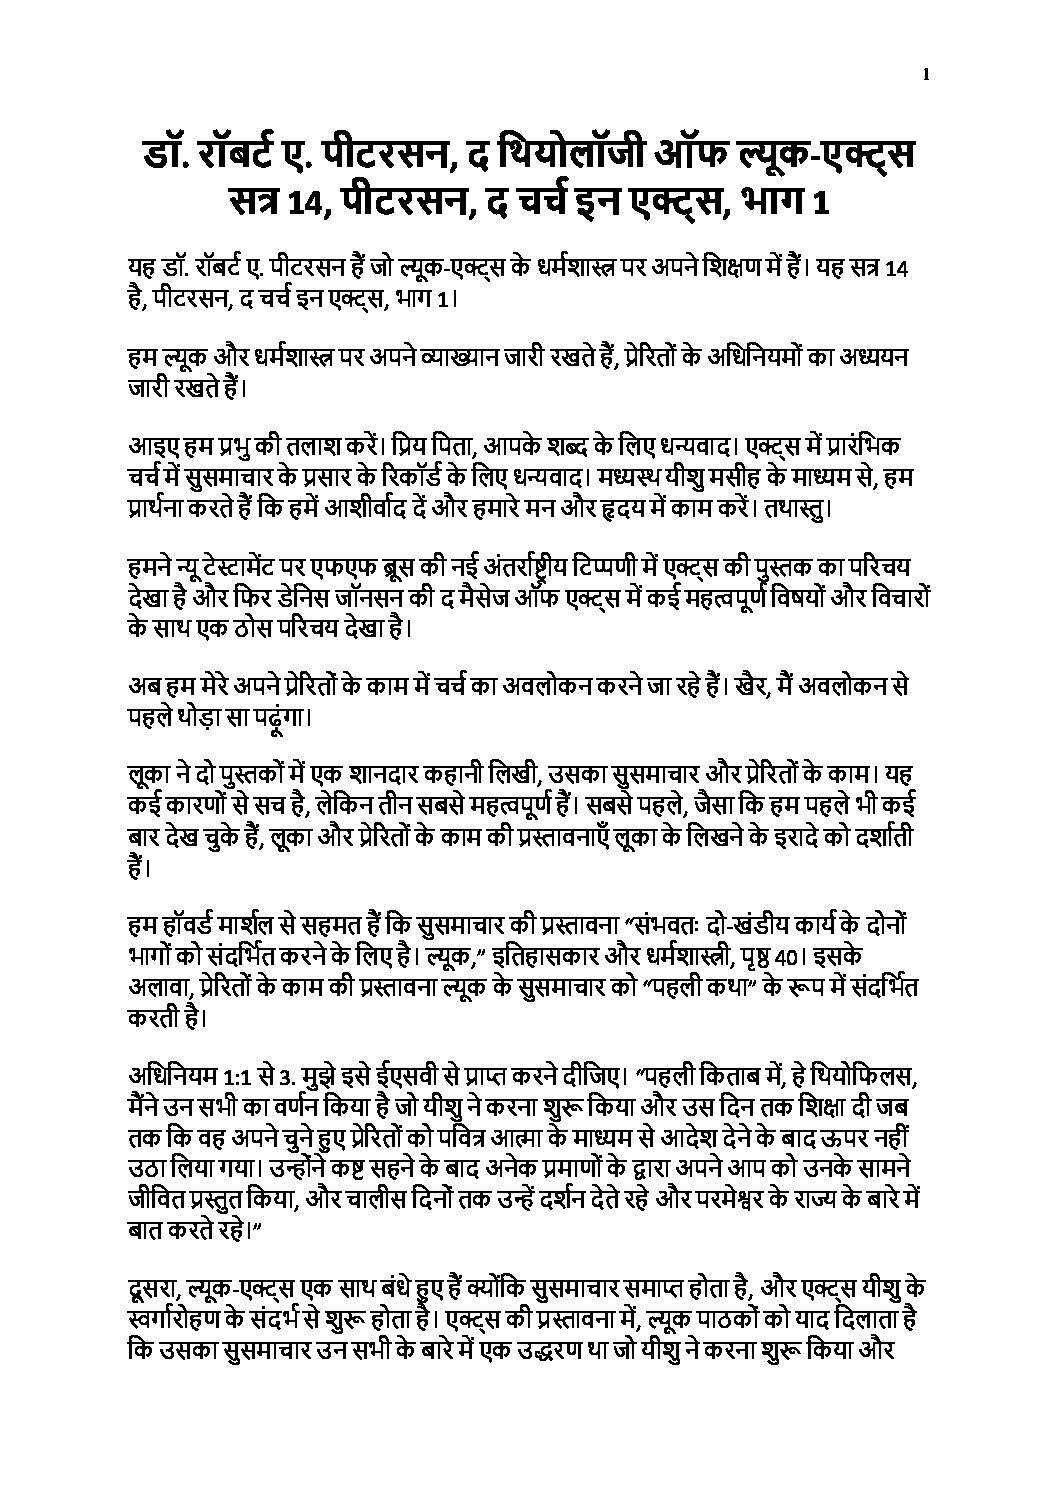 1
डॉ. रॉबर्ट ए. पीटरसन, द थियोलॉजी ऑफ ल्यूक-एक्ट्स
सत्र 14, पीटरसन, द चर्च इन एक्ट्स, भाग 1
यह डॉ. रॉबर्ट ए. पीटरसन हैं जो ल्यूक-एक्ट्स के धर्मशास्त्र पर अपने शिक्षण में हैं। यह सत्र 14
है, पीटरसन, द चर्च इन एक्ट्स, भाग 1।
हम ल्यूक और धर्मशास्त्र पर अपने व्याख्यान जारी रखते हैं, प्रेरितों के अधिनियमों का अध्ययन
जारी रखते हैं।
आइए हम प्रभु की तलाश करें। प्रिय पिता, आपके शब्द के लिए धन्यवाद। एक्ट्स में प्रारंभिक
चर्च में सुसमाचार के प्रसार के रिकॉर्ड के लिए धन्यवाद। मध्यस्थ यीशु मसीह के माध्यम से, हम
प्रार्थना करते हैं कि हमें आशीर्वाद दें और हमारे मन और हृदय में काम करें। तथास्तु।
हमने न्यू टेस्टामेंट पर एफएफ ब्रूस की नई अंतर्राष्ट्रीय टिप्पणी में एक्ट्स की पुस्तक का परिचय
देखा है और फिर डेनिस जॉनसन की द मैसेज ऑफ एक्ट्स में कई महत्वपूर्ण विषयों और विचारों
के साथ एक ठोस परिचय देखा है।
अब हम मेरे अपने प्रेरितों के काम में चर्च का अवलोकन करने जा रहे हैं। खैर, मैं अवलोकन से
पहले थोड़ा सा पढ़ूंगा।
लूका ने दो पुस्तकों में एक शानदार कहानी लिखी, उसका सुसमाचार और प्रेरितों के काम। यह
कई कारणों से सच है, लेकिन तीन सबसे महत्वपूर्ण हैं। सबसे पहले, जैसा कि हम पहले भी कई
बार देख चुके हैं, लूका और प्रेरितों के काम की प्रस्तावनाएँ लूका के लिखने के इरादे को दर्शाती
हैं।
हम हॉवर्ड मार्शल से सहमत हैं कि सुसमाचार की प्रस्तावना “संभवतः दो-खंडीय कार्य के दोनों
भागों को संदर्भित करने के लिए है। ल्यूक,” इतिहासकार और धर्मशास्त्री, पृष्ठ 40। इसके
अलावा, प्रेरितों के काम की प्रस्तावना ल्यूक के सुसमाचार को “पहली कथा” के रूप में संदर्भित
करती है।
अधिनियम 1:1 से 3. मुझे इसे ईएसवी से प्राप्त करने दीजिए। “पहली किताब में, हे थियोफिलस,
मैंने उन सभी का वर्णन किया है जो यीशु ने करना शुरू किया और उस दिन तक शिक्षा दी जब
तक कि वह अपने चुने हुए प्रेरितों को पवित्र आत्मा के माध्यम से आदेश देने के बाद ऊपर नहीं
उठा लिया गया। उन्होंने कष्ट सहने के बाद अनेक प्रमाणों के द्वारा अपने आप को उनके सामने
जीवित प्रस्तुत किया, और चालीस दिनों तक उन्हें दर्शन देते रहे और परमेश्वर के राज्य के बारे में
बात करते रहे।”
दूसरा, ल्यूक-एक्ट्स एक साथ बंधे हुए हैं क्योंकि सुसमाचार समाप्त होता है, और एक्ट्स यीशु के
स्वर्गारोहण के संदर्भ से शुरू होता है। एक्ट्स की प्रस्तावना में, ल्यूक पाठकों को याद दिलाता है
कि उसका सुसमाचार उन सभी के बारे में एक उद्धरण था जो यीशु ने करना शुरू किया और